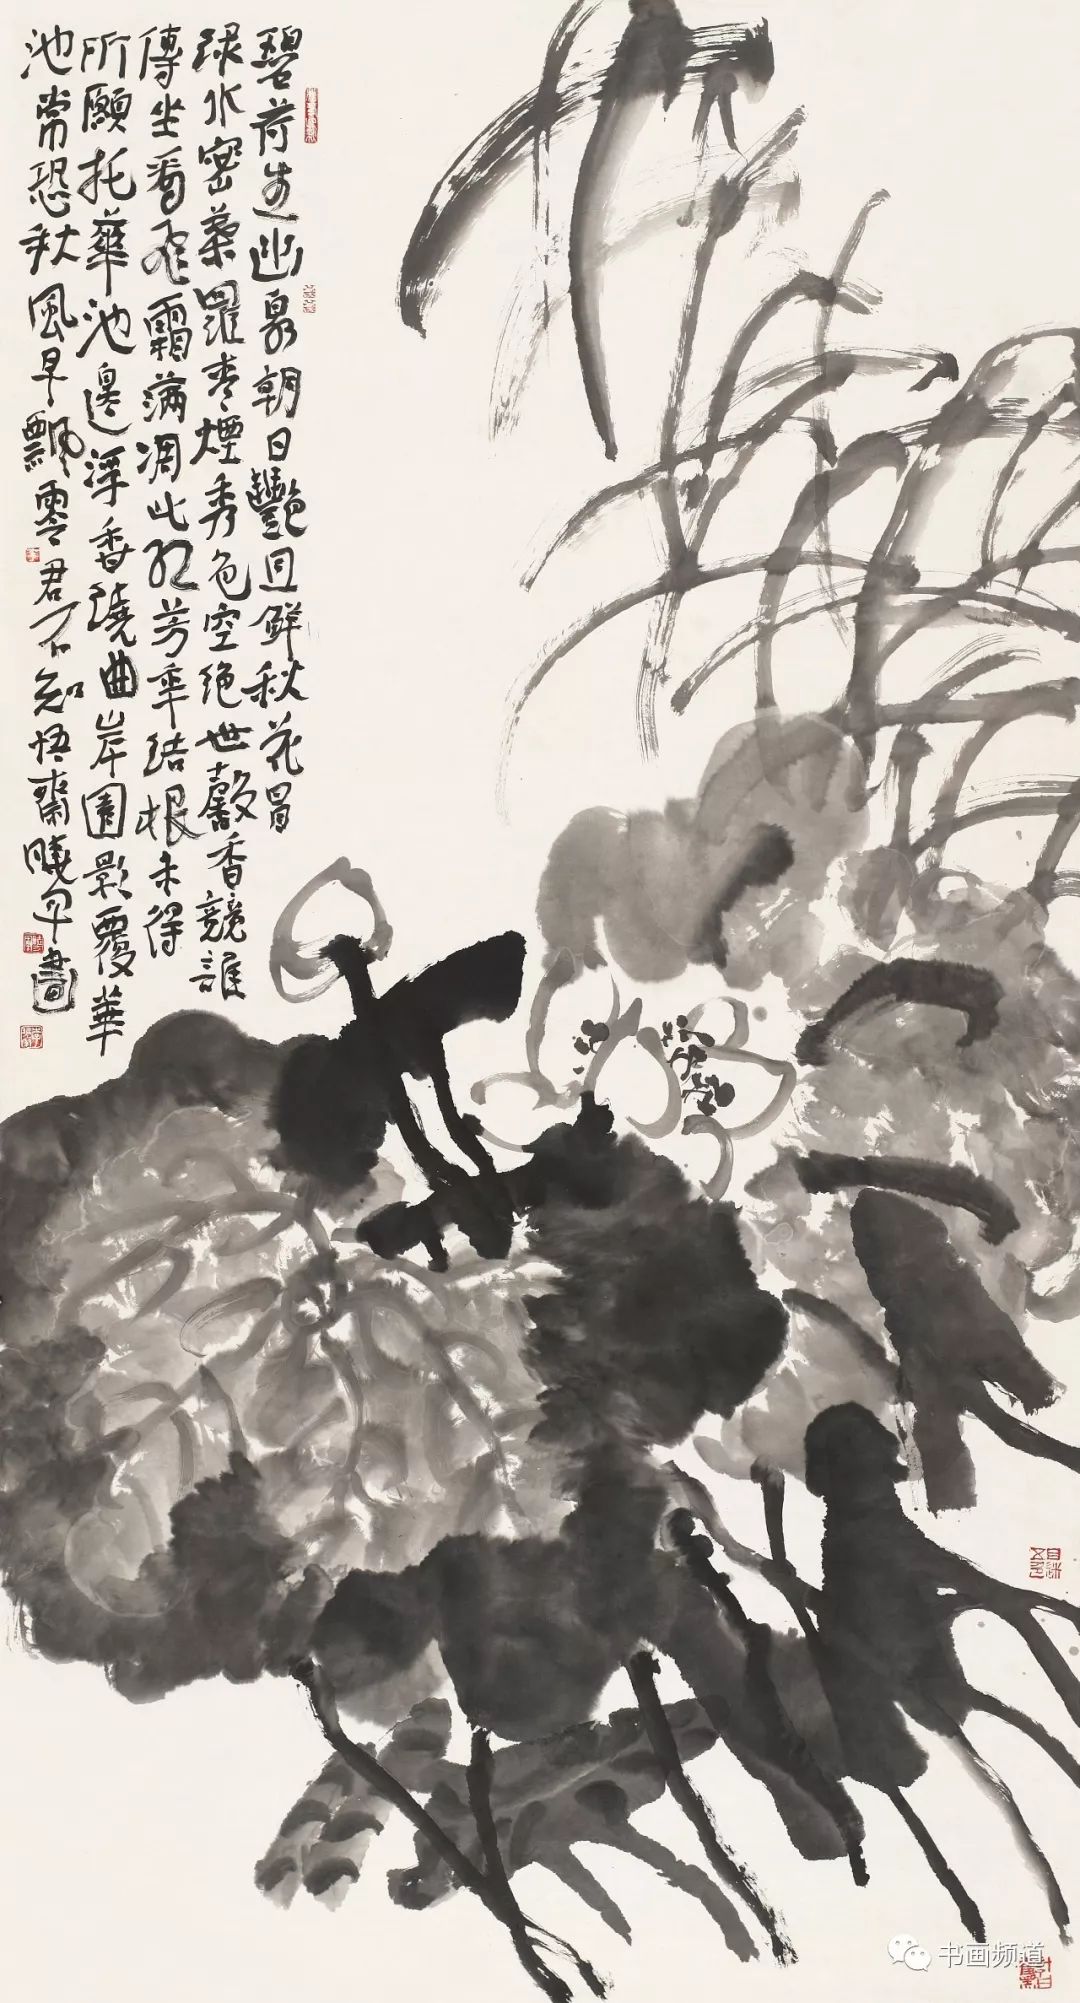 碧荷生幽泉朝日艷且鮮秋花冒
綠水密葉羅青煙秀色空絕世馨香競誰
傳坐看飛霜滿凋此紅芳年結根未得
所願托華池邊浮香繞曲岸圓影覆華
池常恐秋風早飄零君不知悟齋曉軍畫
书画频道